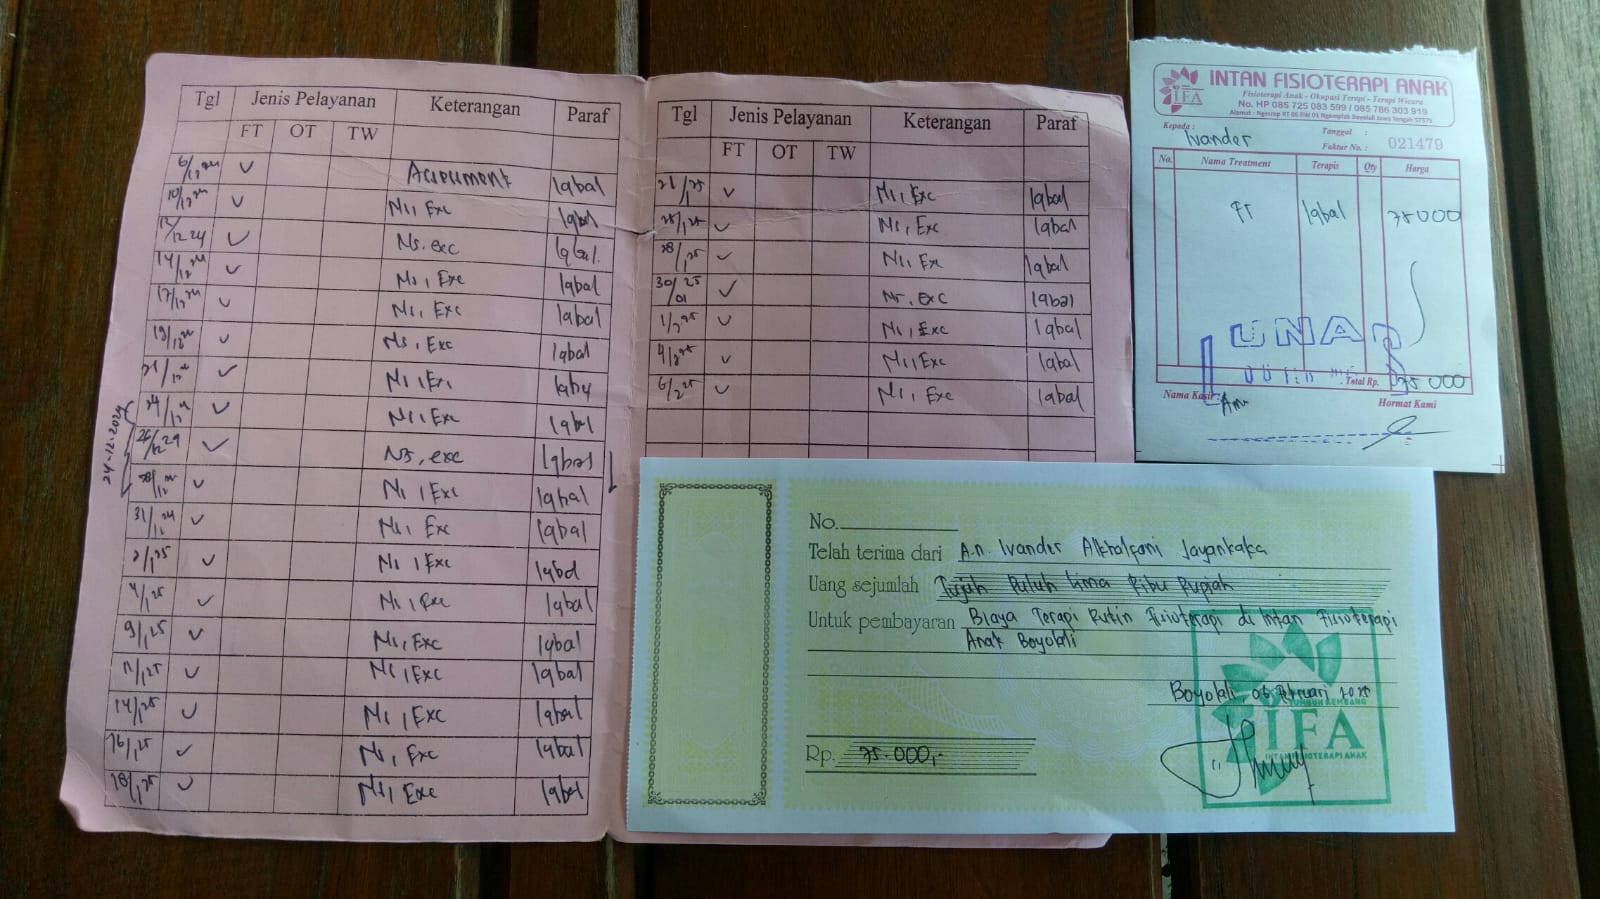 Tgl Jenis Pelayanan Keterangan Paraf
FT OT TW
6/12 24 Iqbal
10/12 24 Ns, Exc Iqbal
12/12 24 Ns. exc Iqbal.
14/12 24 Ns, Exc Iqbal
17/12 24 Ns, Exc Iqbal
19/12 24 Ns, Exc Iqbal
21/12 24 Ns, Exc
24/12 24 Ns, Exc Iqbal
26/12 24 Ns, exc Iqbal
28/12 24 Ns, Exc Iqbal
31/12 24 Ns, Exc Iqbal
2/1 25 Ns, Exc Iqbal
4/1 25 Ns, Exc Iqbal
9/1 25 Ns, Exc Iqbal
11/1 25 Ns, Exc Iqbal
14/1 25 Ns, Exc Iqbal
16/1 25 Ns, Exc Iqbal
18/1 25 Ns, Exc Iqbal
24-12-2024
Tgl Jenis Pelayanan Keterangan Paraf
FT OT TW
21/1 25 Ns, Exc Iqbal
Ns, Exc Iqbal
28/1 25 Ns, Ex Iqbal
30/01 25 Ns, exc Iqbal
1/2 25 Ns, Exc Iqbal
4/2 25 Ns, Exc Iqbal
6/2 25 Ns, Exc Iqbal
INTAN FISIOTERAPI ANAK
IFA
Fisioterapi Anak - Okupasi Terapi - Terapi Wicara
No. HP 085 725 083 599 / 085 786 303 919
Alamat : Ngesrep RT 06 RW 01 Ngemplak Boyolali Jawa Tengah 57375
Kepada : Ivander
Tanggal :
Faktur No. : 021479
No. Nama Treatment Terapis Qty Harga
FT Iqbal 75000
LUNAS
Total Rp. 75 000
Nama Kasir :
Hormat Kami
No.
Telah terima dari A.n. Ivander Alkhalfani Jayantaka
Uang sejumlah Tujuh Puluh Lima Ribu Rupiah
Untuk pembayaran Biaya Terapi Rutin Fisioterapi di Intan Fisioterapi
Anak Boyolali
Boyolali, 06 Februari 2025
TUMBUH KEMBANG
IFA
INTAN FISIOTERAPI ANAK
Rp. 75.000,-